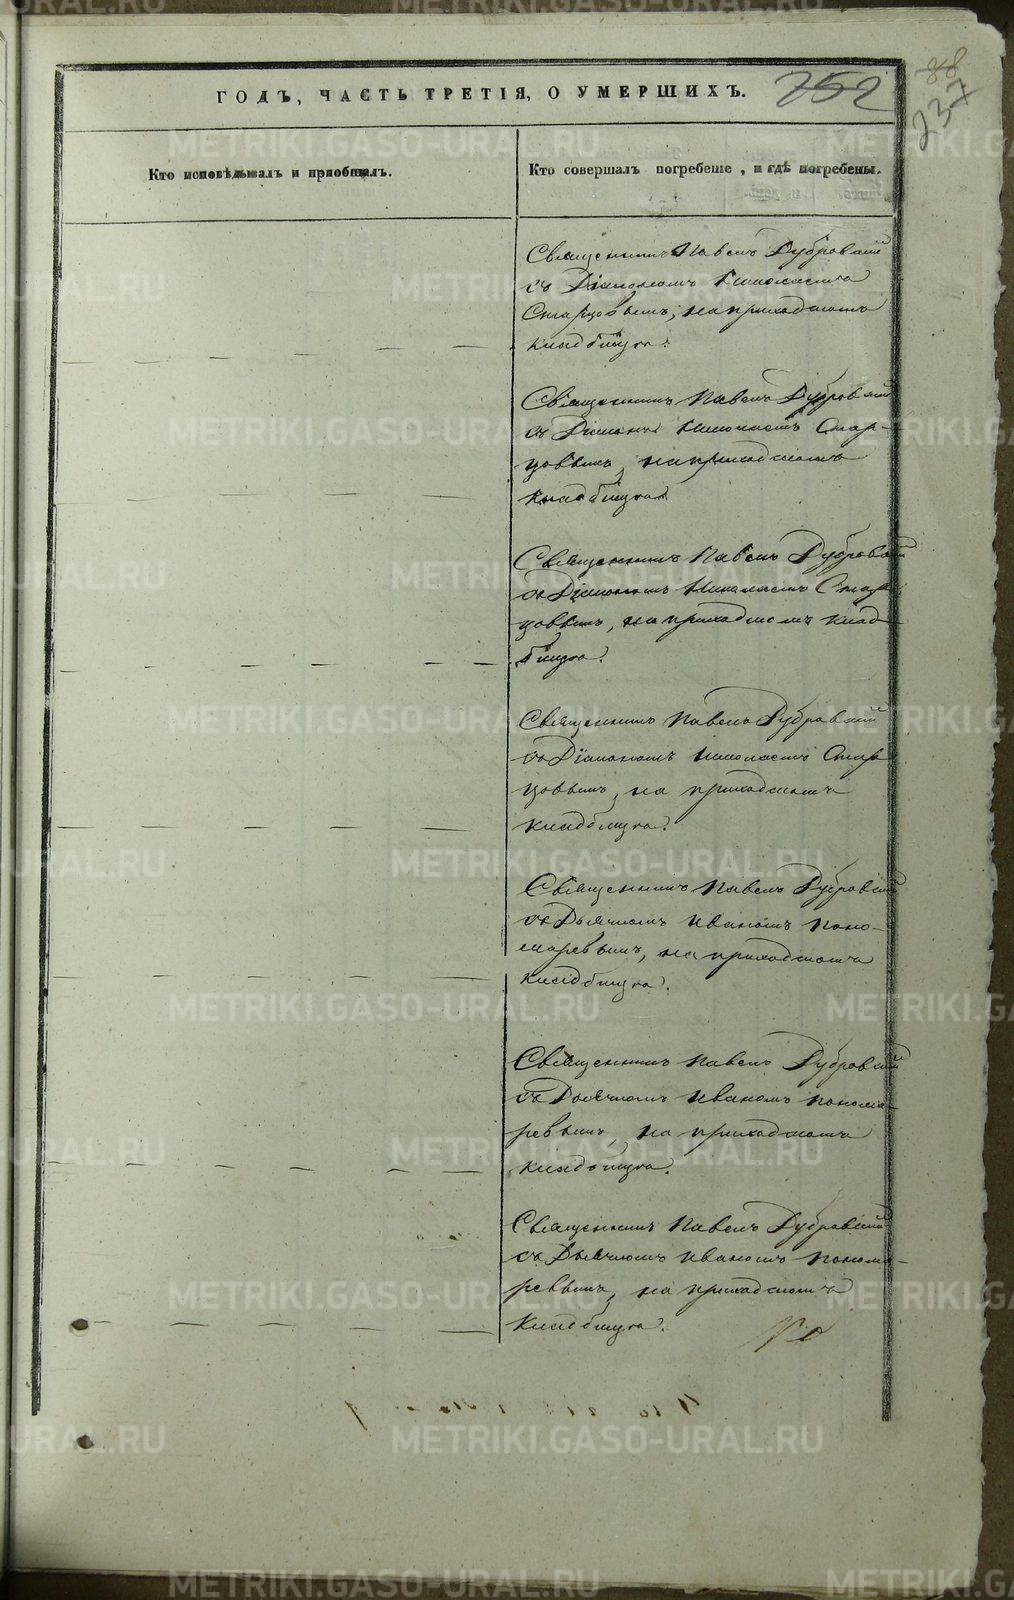 252
88
237
ГОДЪ, ЧАСТЬ ТРЕТІЯ, О УМЕРШИХЪ.
Кто исповѣдывалъ и приобщалъ.
Кто совершалъ погребеніе, и гдѣ погребены.
Священникъ Павелъ Дубровскій
съ Діакономъ Николаемъ
Старцовымъ, на приходскомъ
кладбищѣ.
Священникъ Павелъ Дубровскій
съ Діакономъ Николаемъ Стар-
цовымъ, на приходскомъ
кладбищѣ.
Священникъ Павелъ Дубровскій
съ Діакономъ Николаемъ Стар
цовымъ, на приходскомъ клад
бищѣ.
Священникъ Павелъ Дубровскій
съ Діакономъ Николаемъ Стар
цовымъ, на приходскомъ
кладбищѣ.
Священникъ Павелъ Дубровскій
съ Дьячкомъ Иваномъ Поно-
маревымъ, на приходскомъ
кладбищѣ.
Священникъ Павелъ Дубровскій
съ Дьячкомъ Иваномъ Понома-
ревымъ, на приходскомъ
кладбищѣ.
Священникъ Павелъ Дубровскій
съ Дьячкомъ Иваномъ Понома-
ревымъ, на приходскомъ
кладбищѣ.
METRIKI.GASO-URAL.RU